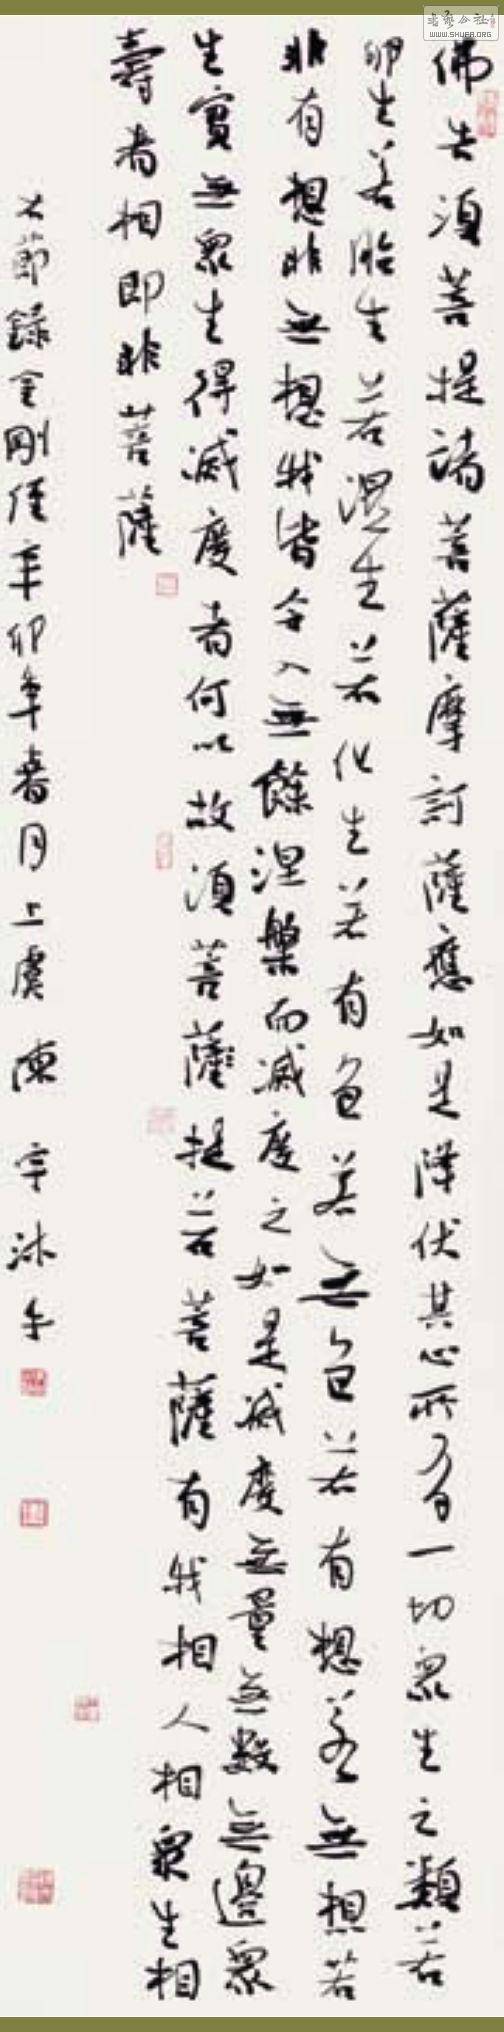 佛告須菩提諸菩薩摩訶薩應如是降伏其心所有一切衆生之類若
卵生若胎生若濕生若化生若有色若無色若有想若無想若
非有想非無想我皆令入無餘涅槃而滅度之如是滅度無量無數無邊衆
生實無衆生得滅度者何以故須菩薩提若菩薩有我相人相衆生相
壽者相即非菩薩
節録金剛經辛卯年春月上虞陳宇沐手
WWW.SHUFA.ORG